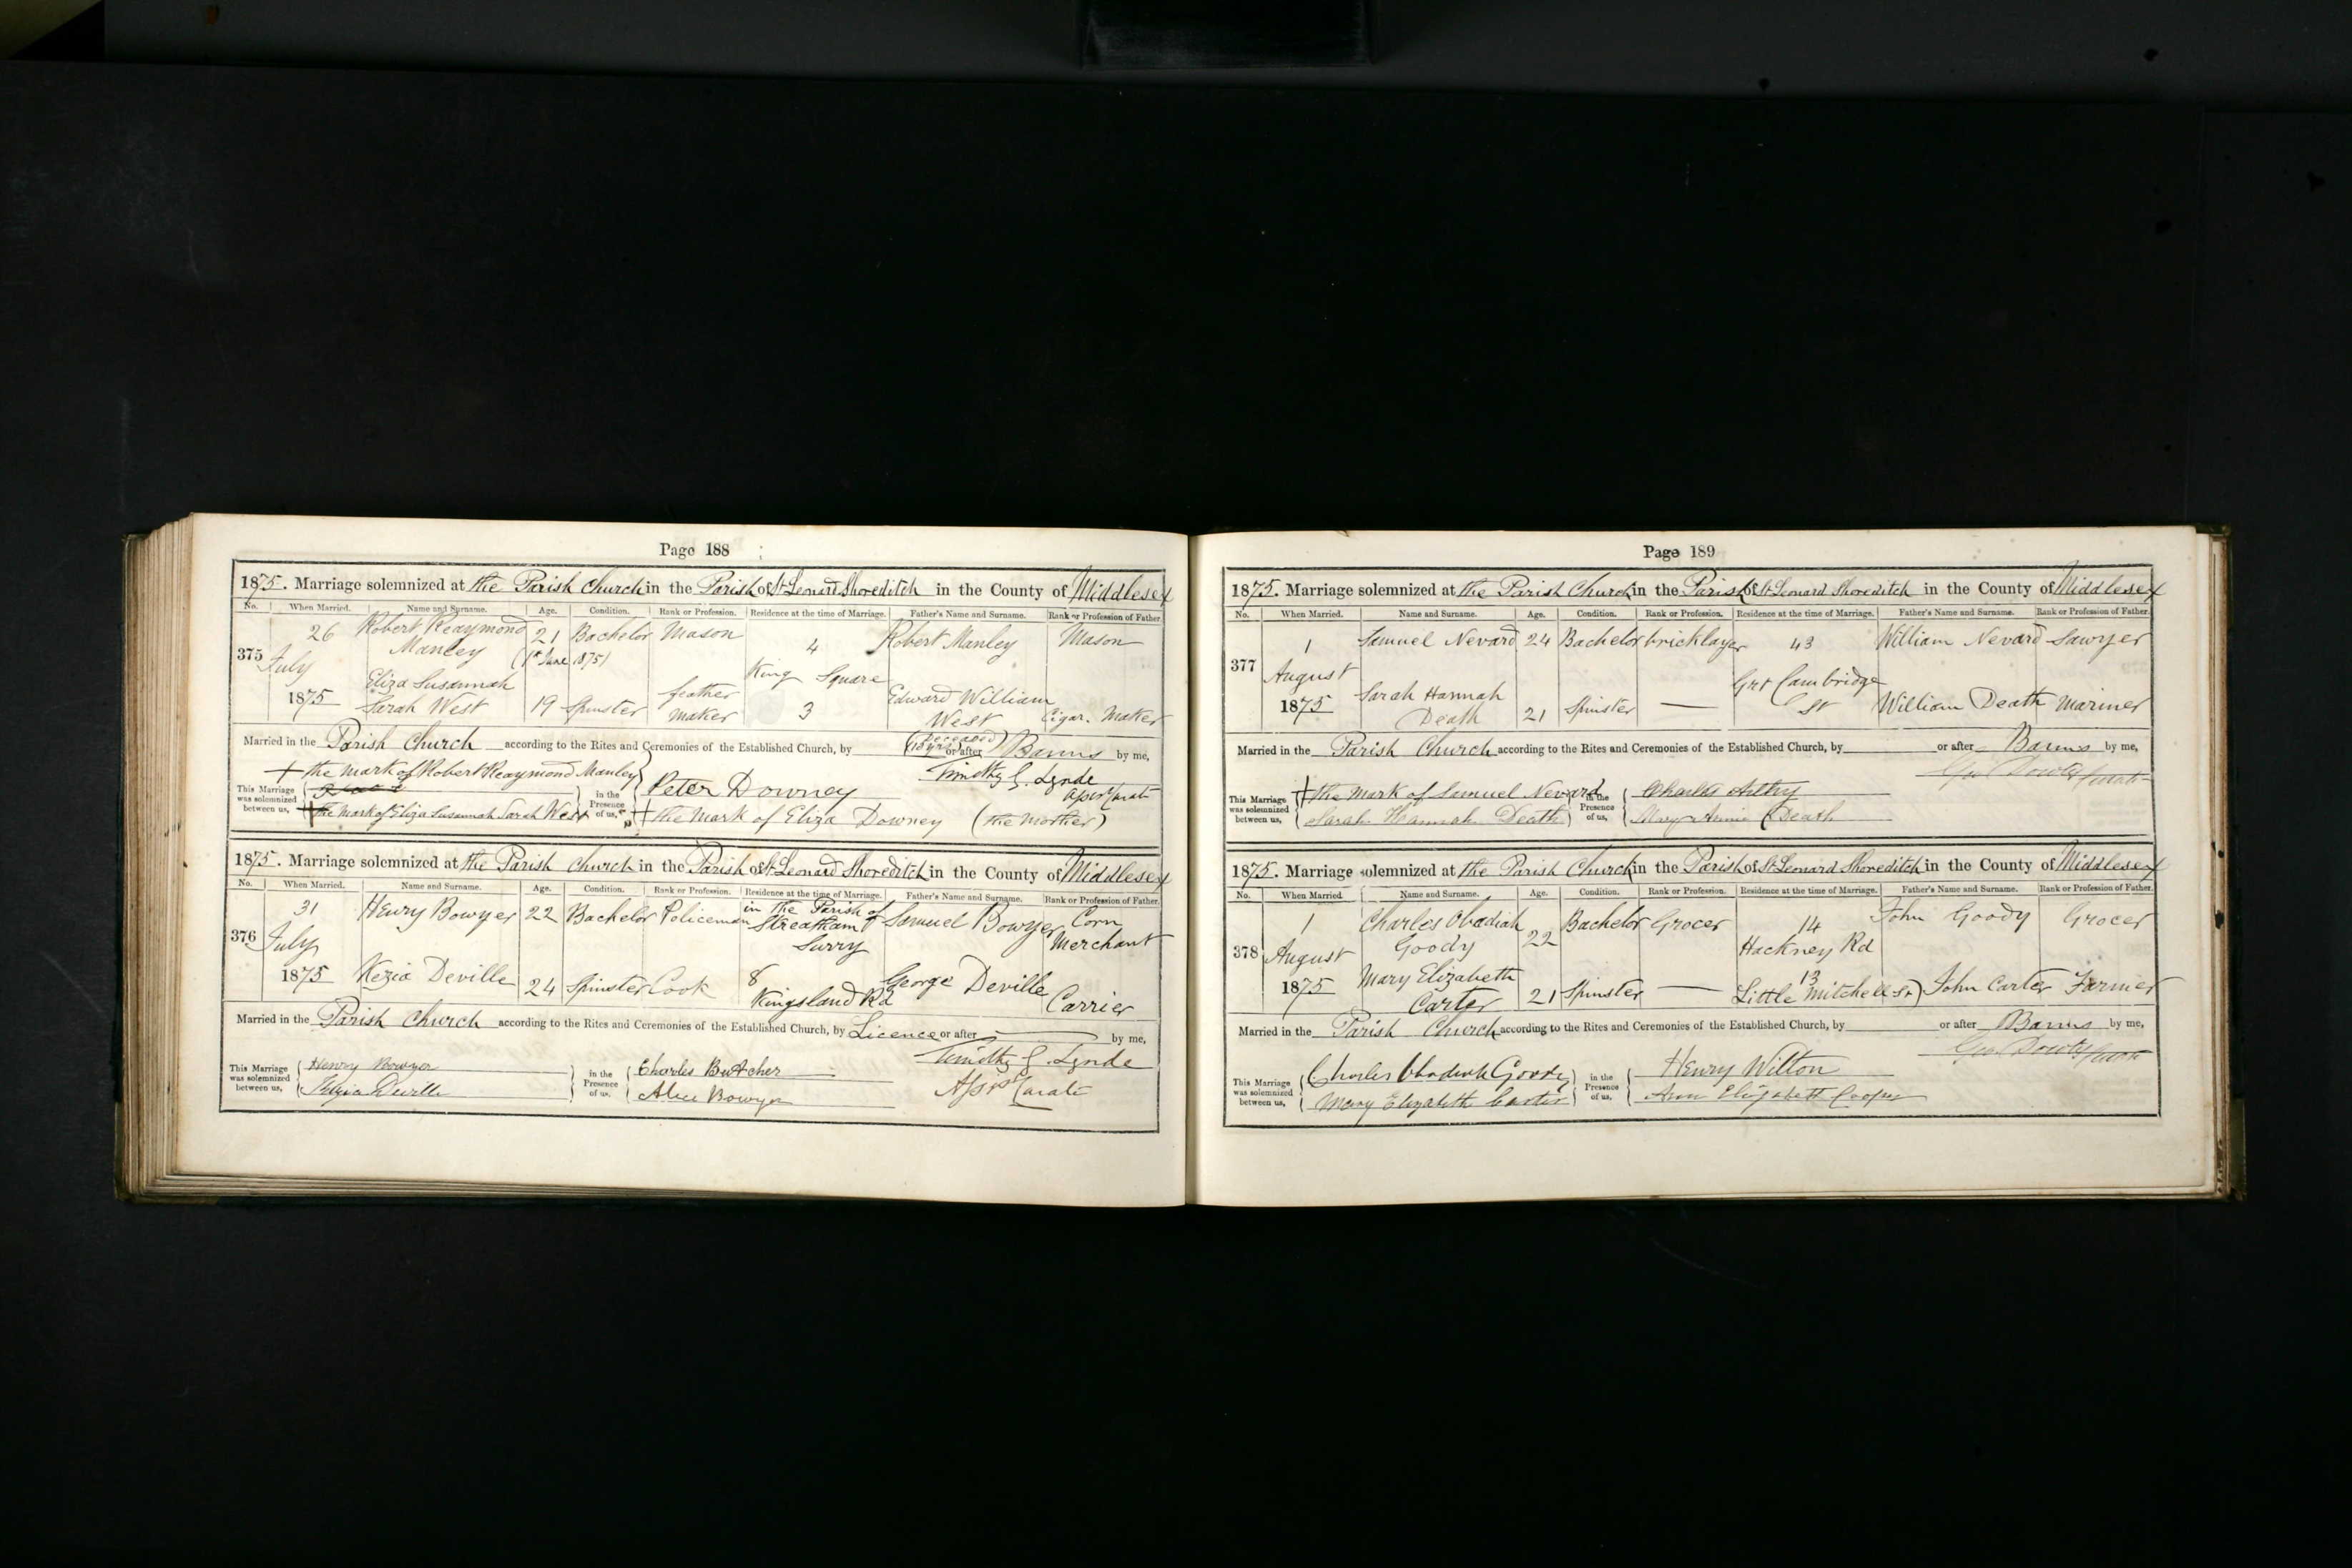 Page 188
1875. Marriage solemnized at the Parish Church in the Parish of St Leonard Shoreditch in the County of Middlesex
No. When Married. Name and Surname. Age. Condition. Rank or Profession. Residence at the time of Marriage. Father's Name and Surname. Rank or Profession of Father.
26 Robert Reaymond 21 Bachelor Mason 4 Robert Manley Mason
375 July Manley (1st June 1875)
Eliza Susannah feather King Square Edward William
1875 Sarah West 19 Spinster maker 3 West Cigar Maker
(deceased)
Married in the Parish Church according to the Rites and Ceremonies of the Established Church, by or after Banns by me,
+ the mark of Robert Reaymond Manley Peter Downey Timothy G. Lynde
This Marriage was solemnized between us, in the Presence of us,
+ the mark of Eliza Susannah Sarah West + the mark of Eliza Downey (the mother)
1875. Marriage solemnized at the Parish Church in the Parish of St Leonard Shoreditch in the County of Middlesex
No. When Married. Name and Surname. Age. Condition. Rank or Profession. Residence at the time of Marriage. Father's Name and Surname. Rank or Profession of Father.
31 Henry Bowyer 22 Bachelor Policeman in the Parish of Samuel Bowyer Corn
376 July Streatham Merchant
Surry
1875 Kezia Deville 24 Spinster Cook 8 George Deville
Kingsland Rd Carrier
Married in the Parish Church according to the Rites and Ceremonies of the Established Church, by Licence or after by me,
Henry Bowyer Charles Butcher Timothy G. Lynde
This Marriage was solemnized between us, in the Presence of us,
Kezia Deville Alice Bowyer Asst Curate
Page 189
1875. Marriage solemnized at the Parish Church in the Parish of St Leonard Shoreditch in the County of Middlesex
No. When Married. Name and Surname. Age. Condition. Rank or Profession. Residence at the time of Marriage. Father's Name and Surname. Rank or Profession of Father.
1 Samuel Nevard 24 Bachelor bricklayer 43 William Nevard Sawyer
377 August Grt Cambridge
1875 Sarah Hannah St William Death Mariner
Death 21 Spinster —
Married in the Parish Church according to the Rites and Ceremonies of the Established Church, by or after Banns by me,
+ the mark of Samuel Nevard Charles
This Marriage was solemnized between us, in the Presence of us,
Sarah Hannah Death Mary Annie Death
1875. Marriage solemnized at the Parish Church in the Parish of St Leonard Shoreditch in the County of Middlesex
No. When Married Name and Surname. Age. Condition. Rank or Profession. Residence at the time of Marriage. Father's Name and Surname. Rank or Profession of Father.
1 Charles Obadiah 22 Bachelor Grocer 14 John Goody Grocer
378 August Goody Hackney Rd
1875 Mary Elizabeth 13
Carter 21 Spinster — Little Mitchell St John Carter Farmer
Married in the Parish Church according to the Rites and Ceremonies of the Established Church, by or after Banns by me,
Charles Obadiah Goody Henry Wilton
This Marriage was solemnized between us, in the Presence of us,
Mary Elizabeth Carter Ann Elizabeth Cooper